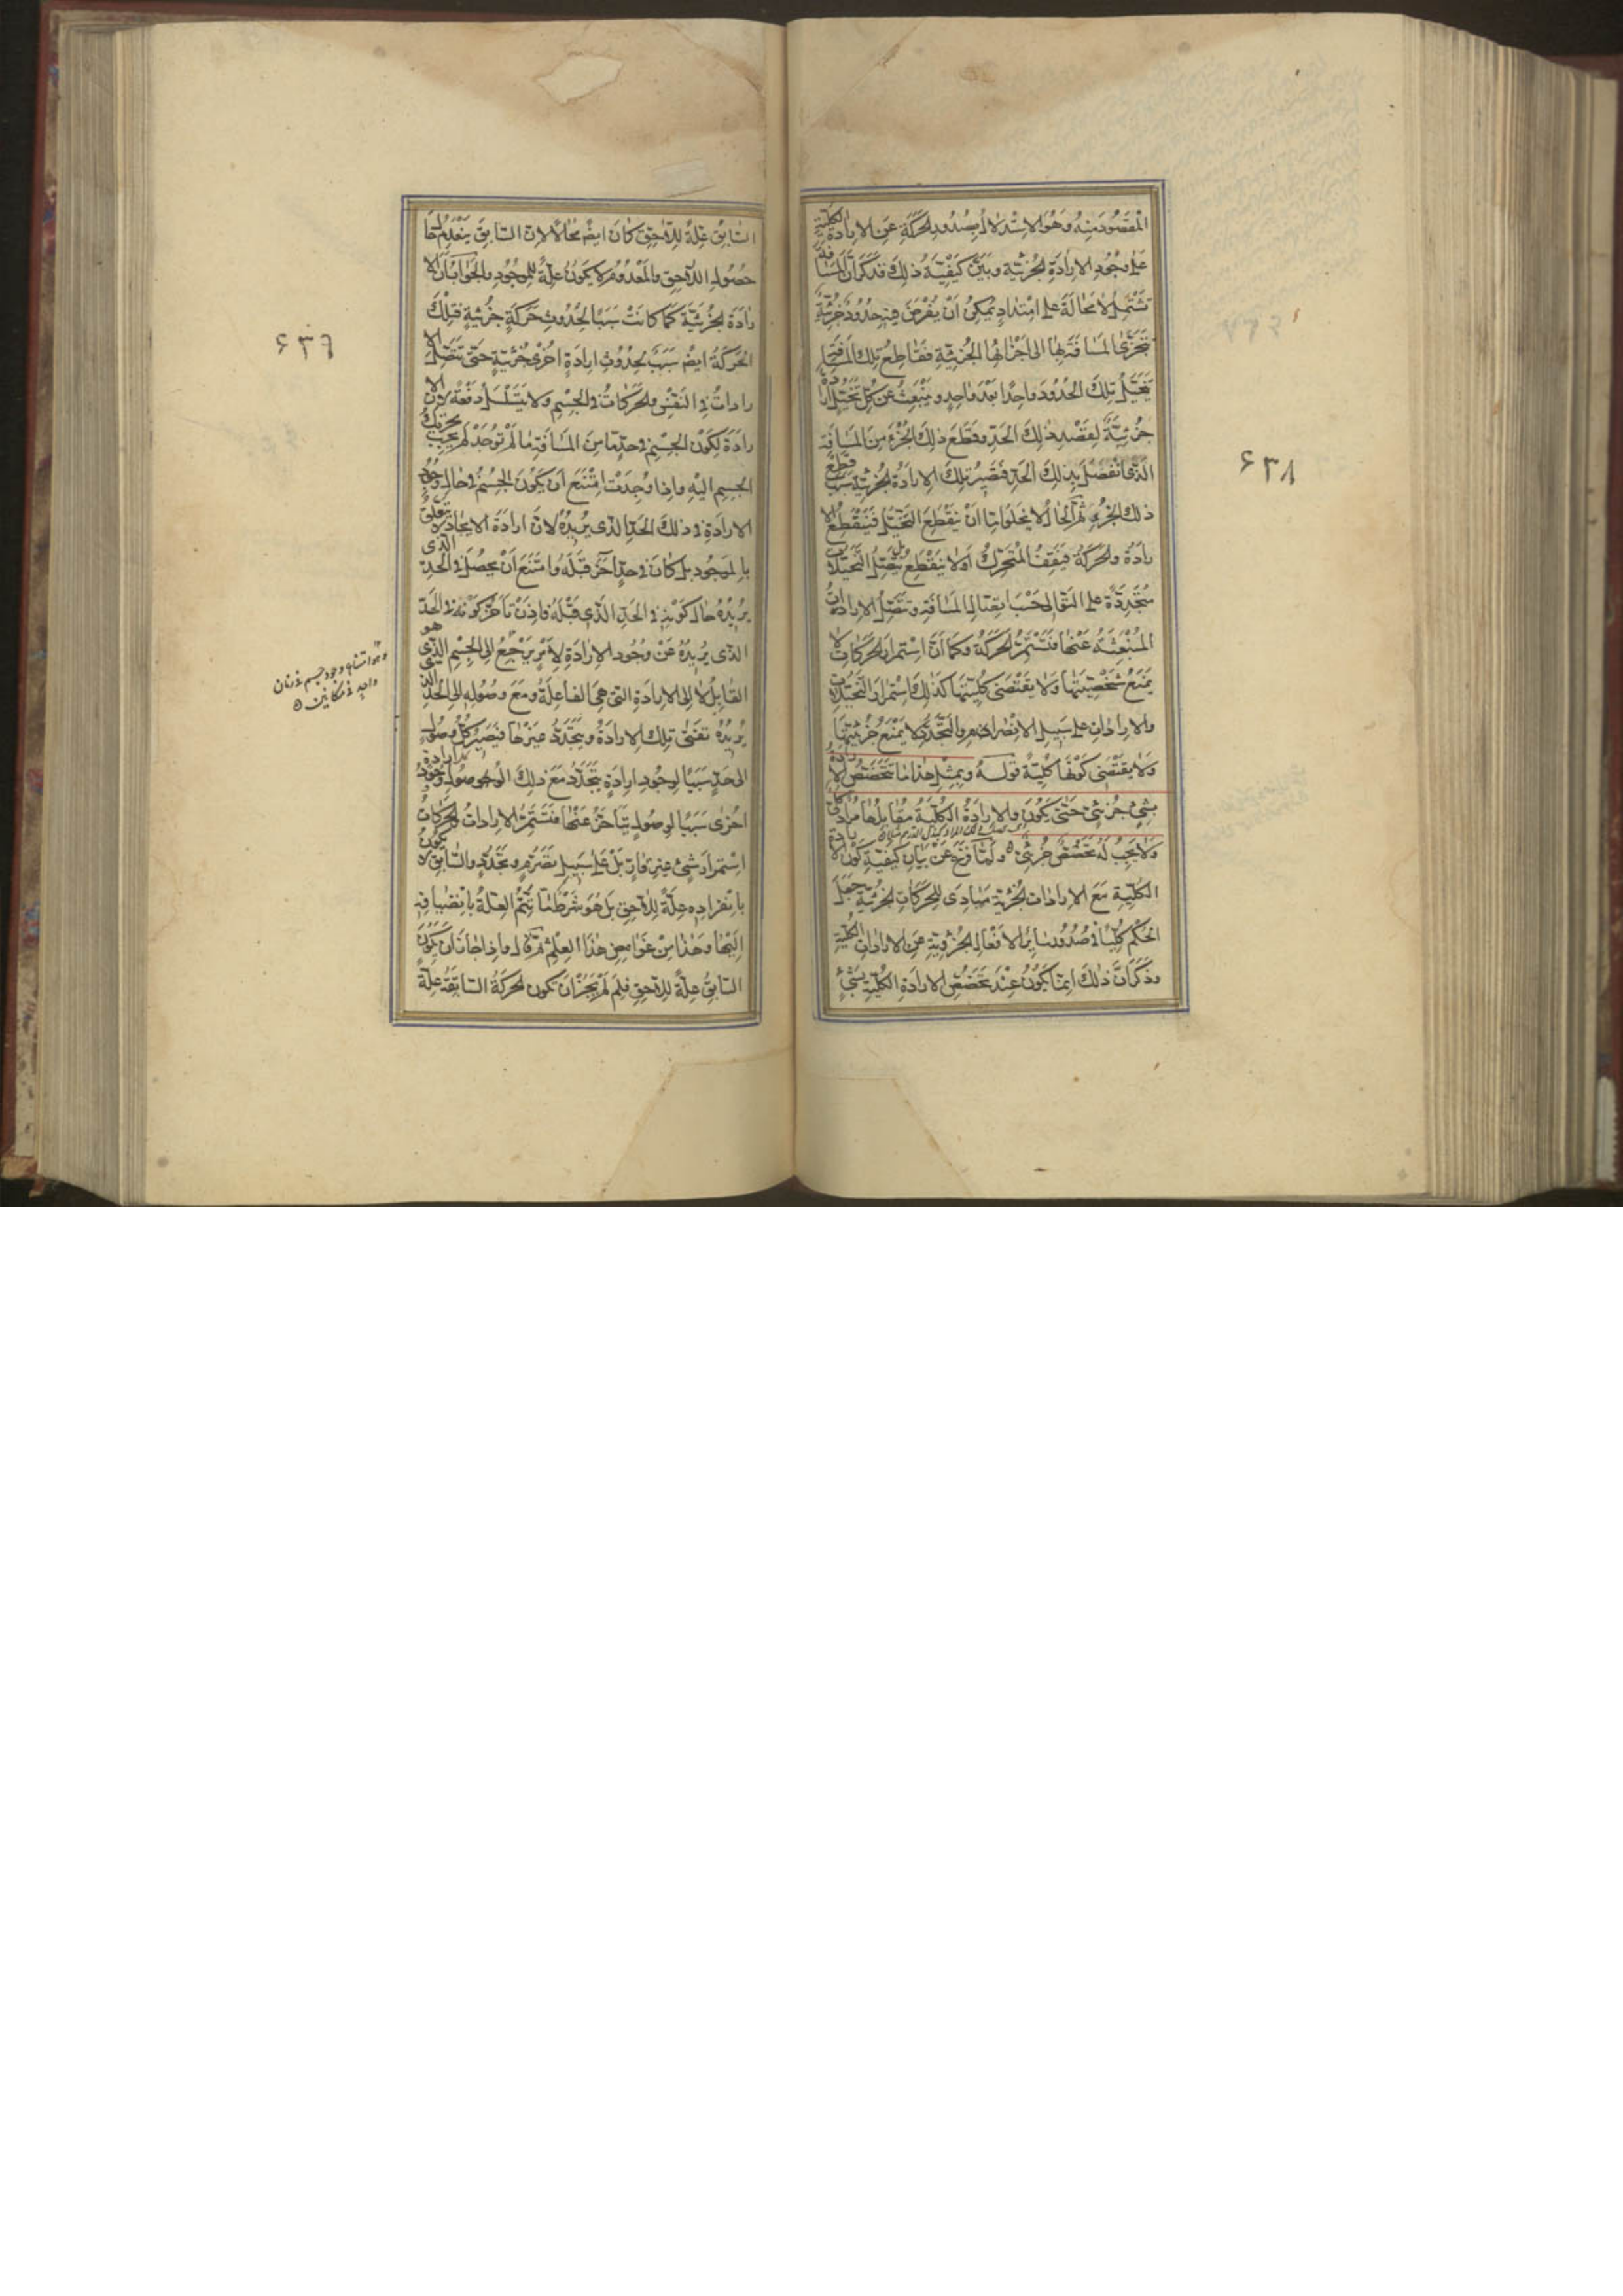 المَقْصُودَ مِنْهُ وَهُوَ الاِسْتِدْلَالُ بِصُدُورِ الحَرَكَةِ عَنِ الاِرَادَةِ الكُلِّيَّةِ
عَلَى وُجُودِ الاِرَادَةِ الجُزْئِيَّةِ وَبَيَّنَ كَيْفِيَّةَ ذٰلِكَ فَذَكَرَ أَنَّ المَسَافَةَ
تَشْتَمِلُ لَا مَحَالَةَ عَلَى امْتِدَادٍ يُمْكِنُ اَنْ يُفْرَضَ فِيهِ حُدُودٌ جُزْئِيَّةٌ
تَتَجَزَّى المَسَافَةُ بِهَا اِلَى اَجْزَائِهَا الجُزْئِيَّةِ فَقَاطِعُ تِلْكَ المَسَافَةِ
يَتَخَيَّلُ تِلْكَ الحُدُودَ وَاحِدًا بَعْدَ وَاحِدٍ وَيَنْبَعِثُ عَنْ كُلِّ تَخَيُّلٍ اِرَادَةٌ
جُزْئِيَّةٌ لِقَصْدِ ذٰلِكَ الحَدِّ وَقَطْعِ ذٰلِكَ الجُزْءِ مِنَ المَسَافَةِ
الَّذِى انْفَصَلَ بِذٰلِكَ الحَدِّ فَتَصِيرُ تِلْكَ الاِرَادَةُ الجُزْئِيَّةُ سَبَبَ قَطْعِ
ذٰلِكَ الجُزْءِ ثُمَّ الحَالُ لَا يَخْلُو اِمَّا اَنْ يَنْقَطِعَ التَّخَيُّلُ فَيَنْقَطِعُ الاِ
رَادَةُ وَالحَرَكَةُ فَيَقِفُ المُتَحَرِّكُ اَوْ لَا يَنْقَطِعُ بَلْ يَتَّصِلُ التَّخَيُّلَاتُ
مُتَجَدِّدَةً عَلَى التَّوَالِى حَسْبَ اتِّصَالِ المَسَافَةِ وَتَتَّصِلُ الاِرَادَاتُ
المُنْبَعِثَةُ عَنْهَا فَتَسْتَمِرُّ الحَرَكَةُ وَكَمَا اَنَّ اسْتِمْرَارَ الحَرَكَاتِ لَا
يَمْنَعُ شَخْصِيَّتَهَا وَلَا يَقْتَضِى كُلِّيَّتَهَا كَذٰلِكَ اسْتِمْرَارُ التَّخَيُّلَاتِ
وَالاِرَادَاتِ عَلَى سَبِيلِ الاِنْصِرَامِ وَالتَّجَدُّدِ لَا يَمْنَعُ جُزْئِيَّتَهَا
وَلَا يَقْتَضِى كَوْنَهَا كُلِّيَّةً قَوْلُهُ وَبِمِثْلِ هٰذَا مَا تَتَخَصَّصُ الاِرَادَةُ
بِشَىْءٍ جُزْئِىٍّ حَتّٰى يَكُونَ وَالاِرَادَةُ الكُلِّيَّةُ مُقَابِلُهَا مُرَادٌ كُلِّىٌّ
وَلَا يَجِبُ لَهُ تَخَصُّصٌ جُزْئِىٌّ وَلَمَّا فَرَغَ عَنْ بَيَانِ كَيْفِيَّةِ كَوْنِ الاِرَادَةِ
الكُلِّيَّةِ مَعَ الاِرَادَاتِ الجُزْئِيَّةِ مَبَادِىَ لِلْحَرَكَاتِ الجُزْئِيَّةِ جَعَلَ
الحُكْمَ كُلِّيًّا فِى صُدُورِ سَايِرِ الاَفْعَالِ الجُزْئِيَّةِ عَنِ الاِرَادَاتِ الكُلِّيَّةِ
وَذَكَرَ اَنَّ ذٰلِكَ اِنَّمَا يَكُونُ عِنْدَ تَخَصُّصِ الاِرَادَةِ الكُلِّيَّةِ بِشَىْءٍ
۶۳۸
السَّابِقُ عِلَّةً لِلَّاحِقِ كَانَ ايض مُحَالًا لِاَنَّ السَّابِقَ يَنْعَدِمُ حَالَ
حُصُولِ اللَّاحِقِ وَالمَعْدُومُ لَا يَكُونُ عِلَّةً لِلْمَوْجُودِ وَالجَوَابُ اَنَّ الاِ
رَادَةَ الجُزْئِيَّةَ كَمَا كَانَتْ سَبَبًا لِحُدُوثِ حَرَكَةٍ جُزْئِيَّةٍ فَتِلْكَ
الحَرَكَةُ ايض سَبَبٌ لِحُدُوثِ اِرَادَةٍ اُخْرٰى جُزْئِيَّةٍ حَتّٰى تَتَّصِلَ الاِ
رَادَاتُ فِى النَّفْسِ وَالحَرَكَاتُ فِى الجِسْمِ وَلَا يَتَسَلْسَلُ دَفْعَةً لِاَنَّ الاِ
رَادَةَ لِكَوْنِ الجِسْمِ فِى حَدٍّ مَا مِنَ المَسَافَةِ مَا لَمْ تُوجَدْ لَمْ يَجِبْ تَحْرِيكُ
الجِسْمِ اِلَيْهِ وَاِذَا وُجِدَتْ امْتَنَعَ اَنْ يَكُونَ الجِسْمُ فِى حَالِ وُجُودِ
الاِرَادَةِ فِى ذٰلِكَ الحَدِّ الَّذِى يُرِيدُهُ لِاَنَّ اِرَادَةَ الاِيجَادِ لَا تَتَعَلَّقُ
بِالمَوْجُودِ بَلْ كَانَ فِى حَدٍّ اٰخَرَ قَبْلَهُ وَامْتَنَعَ اَنْ يَحْصُلَ فِى الحَدِّ الَّذِى
يُرِيدُهُ حَالَ كَوْنِهِ فِى الحَدِّ الَّذِى قَبْلَهُ فَاِذَنْ تَاَخُّرُ كَوْنِهِ فِى الحَدِّ
الَّذِى يُرِيدُهُ عَنْ وُجُودِ الاِرَادَةِ لِاَمْرٍ يَرْجِعُ اِلَى الجِسْمِ الَّذِى هُوَ
القَابِلُ لَا اِلَى الاِرَادَةِ الَّتِى هِىَ الفَاعِلَةُ وَمَعَ وُصُولِهِ اِلَى الحَدِّ الَّذِى
يُرِيدُهُ تَفْنٰى تِلْكَ الاِرَادَةُ وَيَتَجَدَّدُ غَيْرُهَا فَيَصِيرُ كُلُّ وُصُولٍ
اِلَى حَدٍّ سَبَبًا لِوُجُودِ اِرَادَةٍ تَتَجَدَّدُ مَعَ ذٰلِكَ الوُصُولِ وَوُجُودُ كُلِّ اِرَادَةٍ
اُخْرٰى سَبَبًا لِوُصُولٍ يَتَاَخَّرُ عَنْهَا فَتَسْتَمِرُّ الاِرَادَاتُ وَالحَرَكَاتُ
اسْتِمْرَارَ شَىْءٍ غَيْرِ قَارٍّ بَلْ عَلَى سَبِيلِ تَصَرُّمٍ وَتَجَدُّدٍ وَالسَّابِقُ لَا يَكُونُ
بِانْفِرَادِهِ عِلَّةً لِلَّاحِقِ بَلْ هُوَ شَرْطٌ مَّا تَتِمُّ العِلَّةُ بِانْضِيَافِهِ
اِلَيْهَا وَهٰذَا مِنْ غَوَامِضِ هٰذَا العِلْمِ ثُمَّ قَالَ وَاِذَا جَازَ اَنْ يَكُونَ
السَّابِقُ عِلَّةً لِلَّاحِقِ فَلِمَ لَمْ يَجُزْ اَنْ تَكُونَ الحَرَكَةُ السَّابِقَةُ عِلَّةً
۶۳۹
وهو امتناع وجود جسم فى زمان
واحد فى مكانين